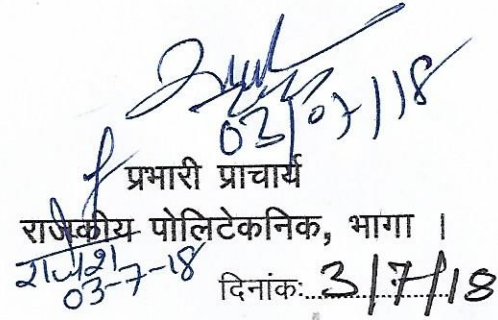 03/07/18
प्रभारी प्राचार्य
राजकीय पोलिटेकनिक, भागा ।
राजेश
03-7-18
दिनांकः......3/7/18